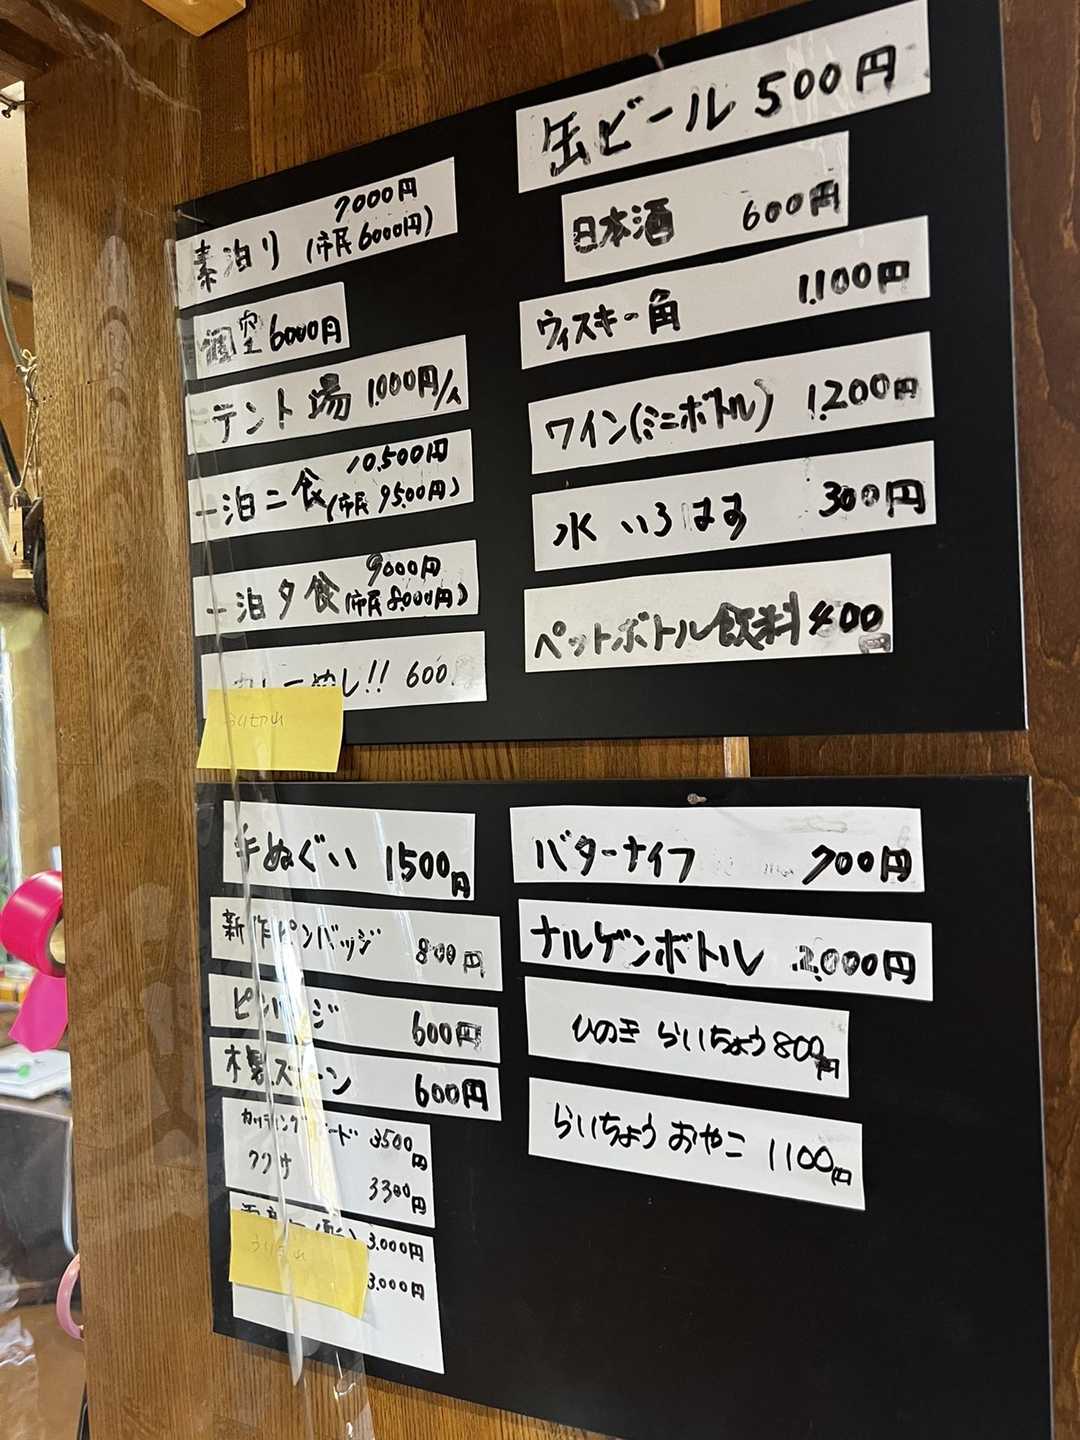 素泊り 7000円
(市民6000円)
個室 6000円
テント場 1,000円/人
一泊二食 10,500円
(市民 9,500円)
一泊夕食 9000円
(市民8,000円)
めし!! 600
うりきれ
缶ビール 500円
日本酒 600円
ウィスキー角 1,100円
ワイン(ミニボトル) 1,200円
水 いろはす 300円
ペットボトル飲料 400円
手ぬぐい 1500円
新作ピンバッジ 800円
ピンバッジ 600円
木製スプーン 600円
カッティングボード 3500円
ククサ 3300円
3,000円
3,000円
バターナイフ 700円
ナルゲンボトル 2,000円
ひのき らいちょう 800円
らいちょう おやこ 1100円